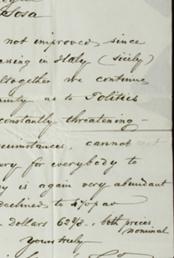 Sosa
not improved since
in Italy (Sicily)
altogether we continue
as to Politics
constantly threatening –
circumstances, cannot
for everybody to
is again very abundant
declined to
dollars 62⅜. both prices
nominal
Yours truly